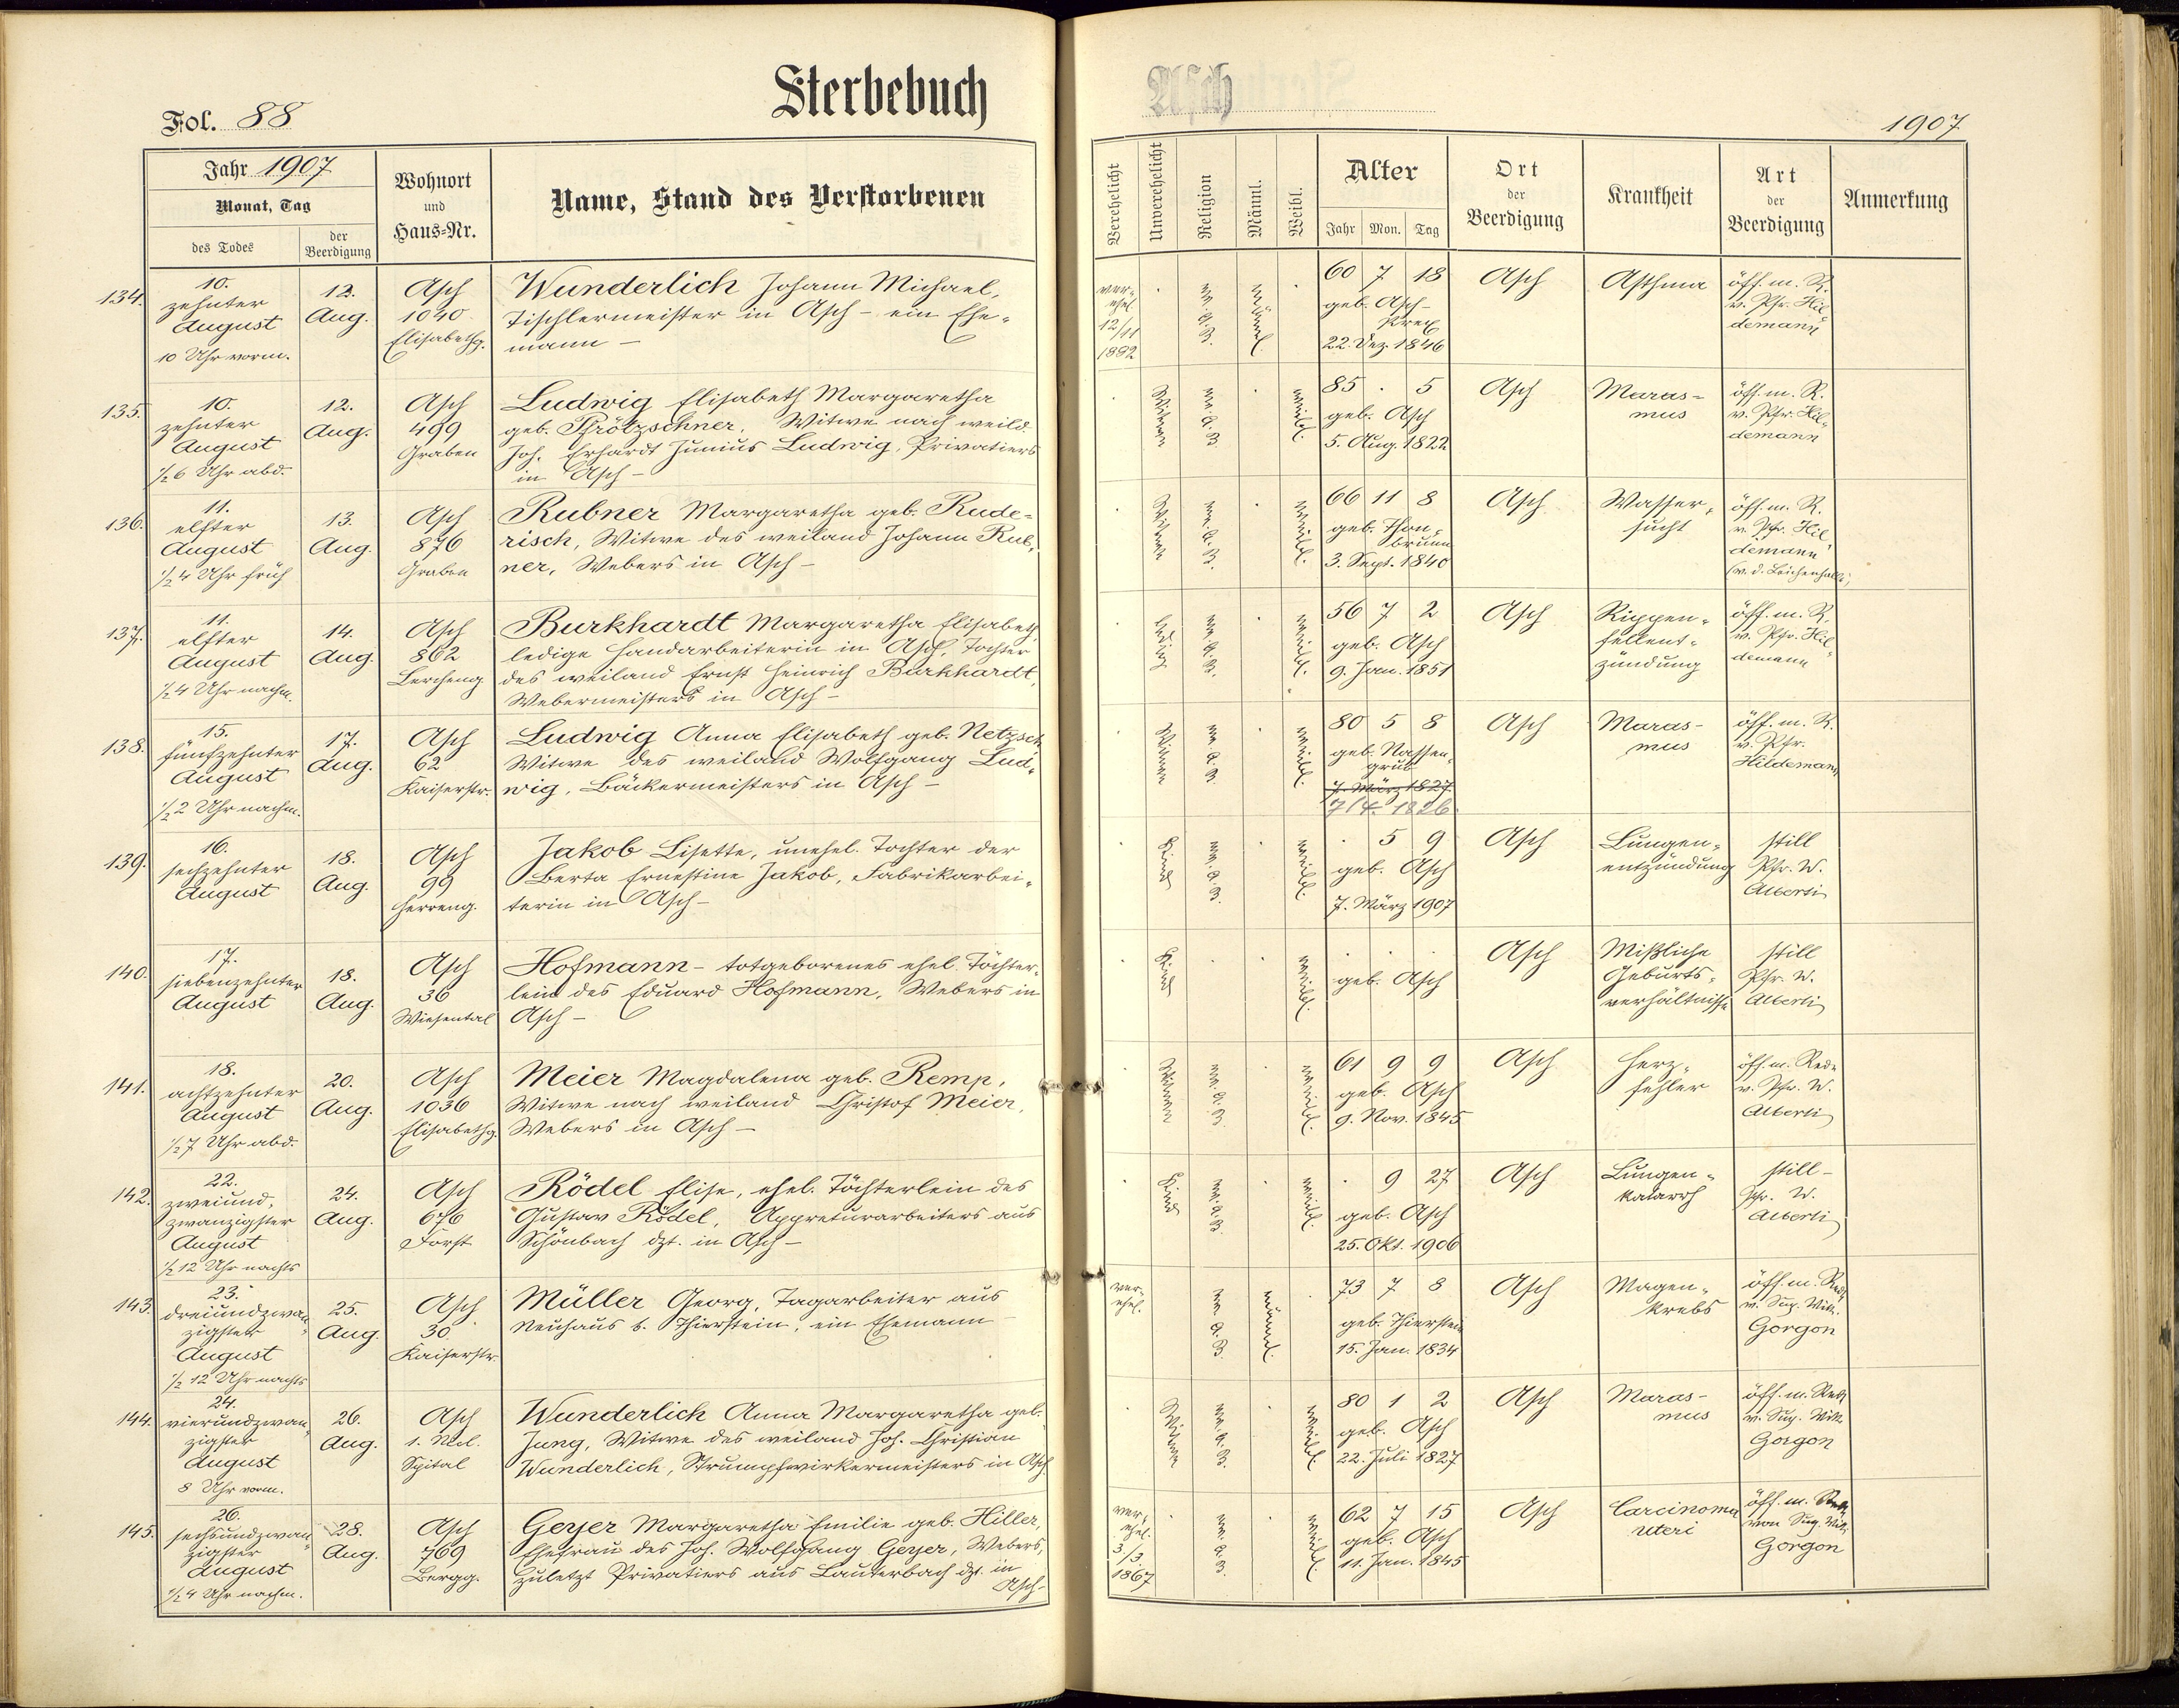 Sterbebuch
Asch
Fol. 88
1907
Jahr 1907
Monat, Tag
des Todes
der Beerdigung
Wohnort
und
Haus-Nr.
Name, Stand des Verstorbenen
Verehelicht
Unverehelicht
Religion
Männl.
Weibl.
Alter
Jahr Mon. Tag
Ort
der
Beerdigung
Krankheit
Art
der
Beerdigung
Anmerkung
134.
10.
zehnter
August
10 Uhr vorm.
12.
Aug.
Asch
1040
Elisabethg.
Wunderlich Johann Michael,
Tischlermeister in Asch – ein Ehe-
mann –
ver-
ehel.
12/11
1882
ev.
A.
B.
männl.
60 7 18
geb. Asch-
22. Dez. 1846
Asch
Asthma
öff. m. R.
v. Pfr. Hil-
demann
135.
10.
zehnter
August
½6 Uhr abd.
12.
Aug.
Asch
499
Graben
Ludwig Elisabeth Margaretha
geb. Pfrötzschner, Witwe nach weild.
Joh. Erhardt Junius Ludwig, Privatiers
in Asch –
Witwe
ev. A. B.
weibl.
85 . 5
geb. Asch
5. Aug. 1822
Asch
Maras-
mus
öff. m. R.
v. Pfr. Hil-
demann
136.
11.
elfter
August
½4 Uhr früh
13.
Aug.
Asch
876
Graben
Rubner Margaretha geb. Rude-
risch, Witwe des weiland Johann Rub-
ner, Webers in Asch –
Witwe
ev. A. B.
weibl.
66 11 8
geb. Thon-
brunn
3. Sept. 1840
Asch
Wasser-
sucht
öff. m. R.
v. Pfr. Hil-
demann
(v. d. Leichenhalle)
137.
11.
elfter
August
½4 Uhr nachm.
14.
Aug.
Asch
862
Lercheng
Burkhardt Margaretha Elisabeth,
ledige Handarbeiterin in Asch, Tochter
des weiland Ernst Heinrich Burkhardt,
Webermeisters in Asch –
ledig
ev. A. B.
weibl.
56 7 2
geb. Asch
9. Jan. 1851
Asch
Rippen-
fellent-
zündung
öff. m. R.
v. Pfr. Hil-
demann
138.
15.
fünfzehnter
August
½2 Uhr nachm.
17.
Aug.
Asch
62
Kaiserstr.
Ludwig Anna Elisabeth geb. Netzsch,
Witwe des weiland Wolfgang Lud-
wig, Bäckermeisters in Asch –
Witwe
ev. A. B.
weibl.
80 5 8
geb. Nassen-
grub
7. März 1827
7/4. 1826
Asch
Maras-
mus
öff. m. R.
v. Pfr.
Hildemann
139.
16.
sechzehnter
August
18.
Aug.
Asch
99
Herreng.
Jakob Lisette, unehel. Tochter der
Berta Ernestine Jakob, Fabrikarbei-
terin in Asch –
Kind
ev. A. B.
weibl.
. 5 9
geb. Asch
7. März 1907
Asch
Lungen-
entzündung
still
Pfr. W.
Alberti
140.
17.
siebenzehnter
August
18.
Aug.
Asch
36
Wiesental
Hofmann – totgeborenes ehel. Töchter-
lein des Eduard Hofmann, Webers in
Asch –
Kind
weibl.
geb. Asch
Asch
Mißliche
Geburts-
verhältnisse
still
Pfr. W.
Alberti
141.
18.
achtzehnter
August
½7 Uhr abd.
20.
Aug.
Asch
1036
Elisabethg.
Meier Magdalena geb. Remp,
Witwe nach weiland Christof Meier,
Webers in Asch –
Witwe
ev. A. B.
weibl.
61 9 9
geb. Asch
9. Nov. 1845
Asch
Herz-
fehler
öff. m. Rede
v. Pfr. W.
Alberti
142.
22.
zweiund-
zwanzigster
August
½12 Uhr nachts
24.
Aug.
Asch
676
Forst
Rödel Elise, ehel. Töchterlein des
Gustav Rödel, Appreturarbeiters aus
Schönbach dzt. in Asch –
Kind
ev. A. B.
weibl.
. 9 27
geb. Asch
25. Okt. 1906
Asch
Lungen-
katarrh
still –
Pfr. W.
Alberti
143.
23.
dreiundzwan-
zigster
August
½12 Uhr nachts
25.
Aug.
Asch
30
Kaiserstr.
Müller Georg, Tagarbeiter aus
Neuhaus b. Thierstein, ein Ehemann –
ver-
ehel.
ev. A. B.
männl.
73 7 8
geb. Thierstein
15. Jan. 1834
Asch
Magen-
krebs
öff. m. Rede
v. Sup. Vik.
Gorgon
144.
24.
vierundzwan-
zigster
August
8 Uhr vorm.
26.
Aug.
Asch
Spital
Wunderlich Anna Margaretha geb.
Jung, Witwe des weiland Joh. Christian
Wunderlich, Strumpfwirkermeisters in Asch
Witwe
ev. A. B.
weibl.
80 1 2
geb. Asch
22. Juli 1827
Asch
Maras-
mus
öff. m. Rede
v. Sup. Vik.
Gorgon
145.
26.
sechsundzwan-
zigster
August
½4 Uhr nachm.
28.
Aug.
Asch
769
Bergg.
Geyer Margaretha Emilie geb. Hiller,
Ehefrau des Joh. Wolfgang Geyer, Webers,
zuletzt Privatiers aus Lauterbach dzt. in
Asch –
ver-
ehel.
3./3.
1867
ev. A. B.
weibl.
62 7 15
geb. Asch
11. Jan. 1845
Asch
Carcinoma
uteri
öff. m. Rede
von Sup. Vik.
Gorgon